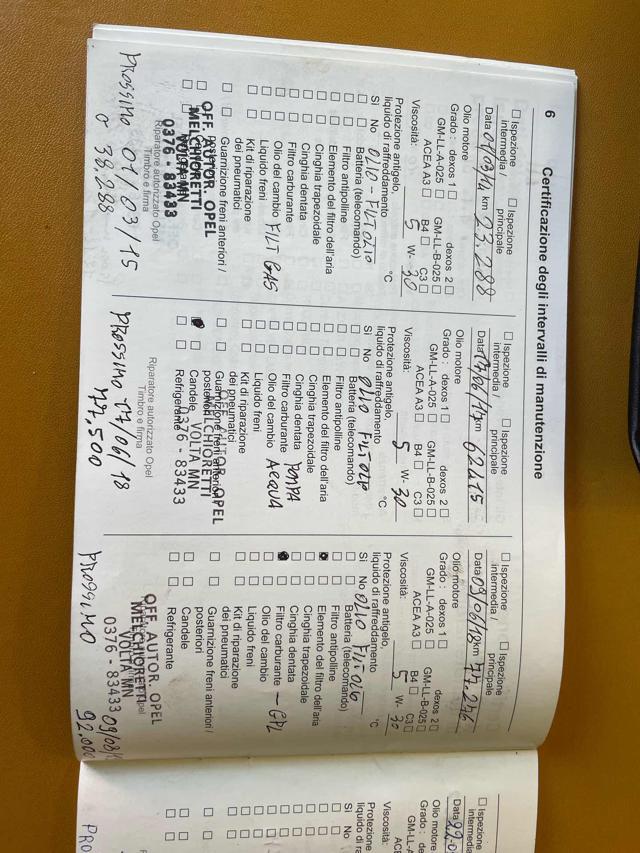 6
Certificazione degli intervalli di manutenzione
Ispezione intermedia / Ispezione principale
Data 01/03/14 km 23.288
Olio motore
Grado : dexos 1 dexos 2
GM-LL-A-025 GM-LL-B-025
ACEA A3 B4 C3
Viscosità: 5 W- 30
Protezione antigelo,
liquido di raffreddamento °C
Sì No OLIO - FILT OLIO
Batteria (telecomando)
Filtro antipolline
Elemento del filtro dell'aria
Cinghia trapezoidale
Cinghia dentata
Filtro carburante
Olio del cambio FILT GAS
Liquido freni
Kit di riparazione
dei pneumatici
Guarnizione freni anteriori /
OFF. AUTOR. OPEL
MELCHIORETTI
VOLTA MN
0376 - 83433
Riparatore autorizzato Opel
Timbro e firma
PROSSIMO 01/03/15
o 38.288
Ispezione intermedia / Ispezione principale
Data km 62415
Olio motore
Grado : dexos 1 dexos 2
GM-LL-A-025 GM-LL-B-025
ACEA A3 B4 C3
Viscosità: 5 W- 30
Protezione antigelo,
liquido di raffreddamento °C
Sì No OLIO FILT OLIO
Batteria (telecomando)
Filtro antipolline
Elemento del filtro dell'aria
Cinghia trapezoidale
Cinghia dentata POMPA
Filtro carburante ACQUA
Olio del cambio
Liquido freni
Kit di riparazione
dei pneumatici
Guarnizione freni anteriori /
posteriori
Candele
Refrigerante
OFF. AUTOR. OPEL
MELCHIORETTI
VOLTA MN
0376 - 83433
Riparatore autorizzato Opel
Timbro e firma
PROSSIMO 17/06/18
77.500
Ispezione intermedia / Ispezione principale
Data 09/06/18 km 77.246
Olio motore
Grado : dexos 1 dexos 2
GM-LL-A-025 GM-LL-B-025
ACEA A3 B4 C3
Viscosità: 5 W- 30
Protezione antigelo,
liquido di raffreddamento °C
Sì No OLIO FILT OLIO
Batteria (telecomando)
Filtro antipolline
Elemento del filtro dell'aria
Cinghia trapezoidale
Cinghia dentata
Filtro carburante - GPL
Olio del cambio
Liquido freni
Kit di riparazione
dei pneumatici
Guarnizione freni anteriori /
posteriori
Candele
Refrigerante
OFF. AUTOR. OPEL
MELCHIORETTI
VOLTA MN
0376 - 83433
PROSSIMO
92.000
Ispezione
intermedia
Data
Olio motore
Grado :
Viscosità:
Protezione
liquido di
Sì No
PRO